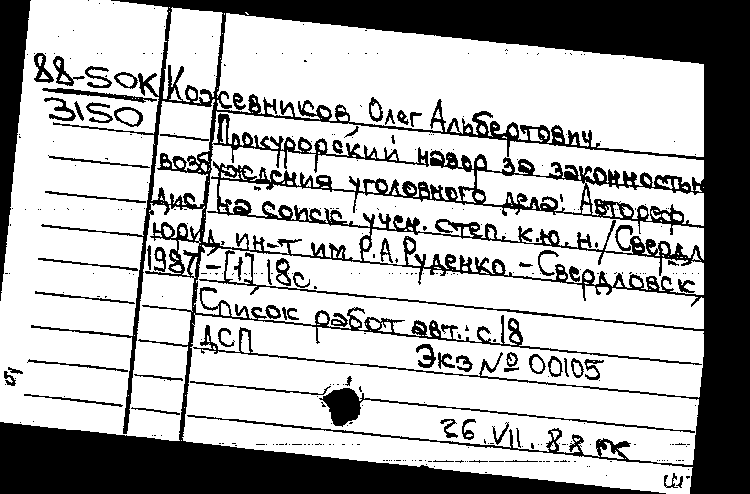 88-50К Кожевников, Олег Альбертович.
3150
Прокурорский надзор за законностью
возбуждения уголовного дела: Автореф.
дис. на соиск. учен. степ. к.ю.н./Свердл
юрид. ин-т им. Р.А.Руденко.-Свердловск,
1987.-[1] 18с.
Список работ авт.: с.18
ДСП
Экз № 00105
26.VII.88